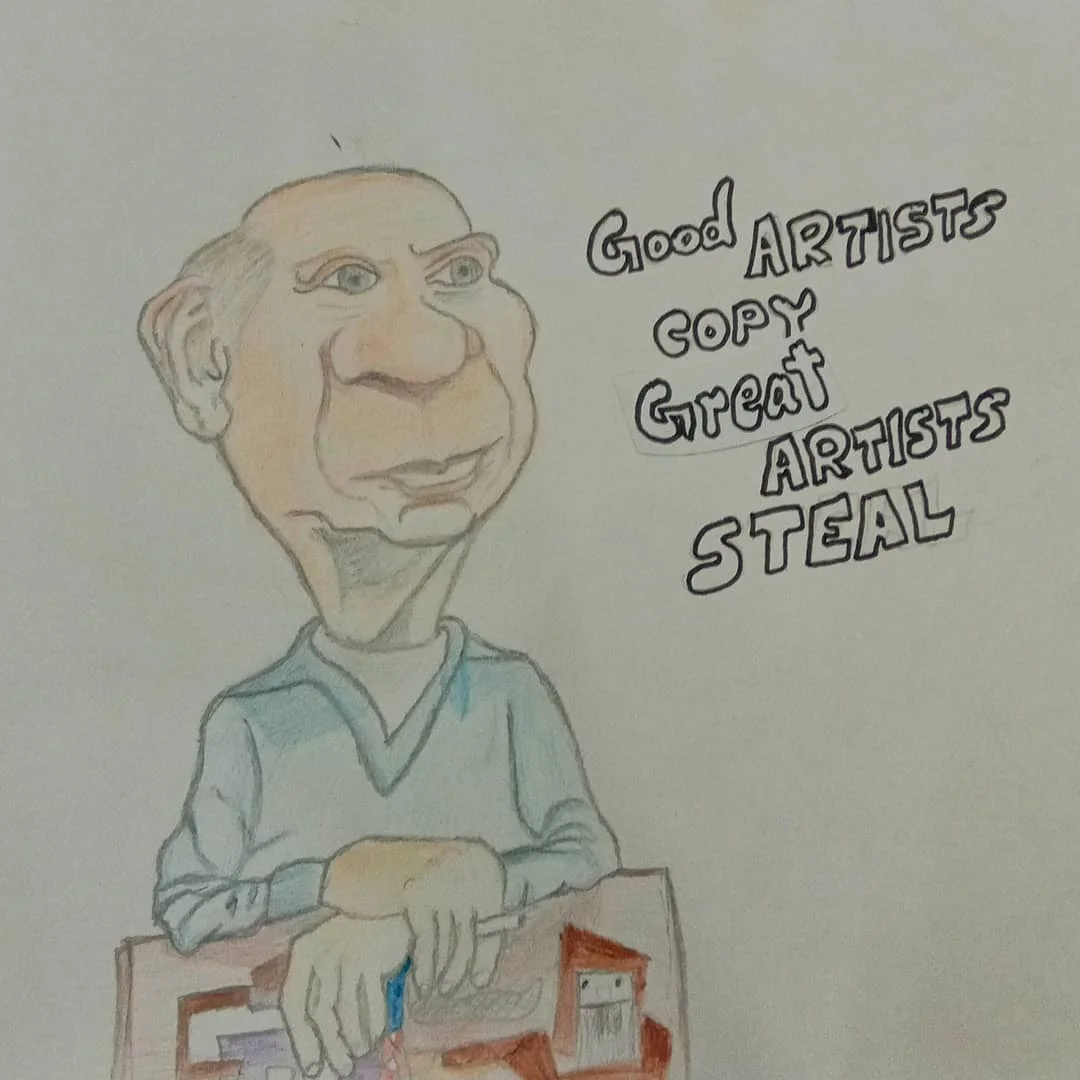 Good ARTISTS
COPY
Great
ARTISTS
STEAL